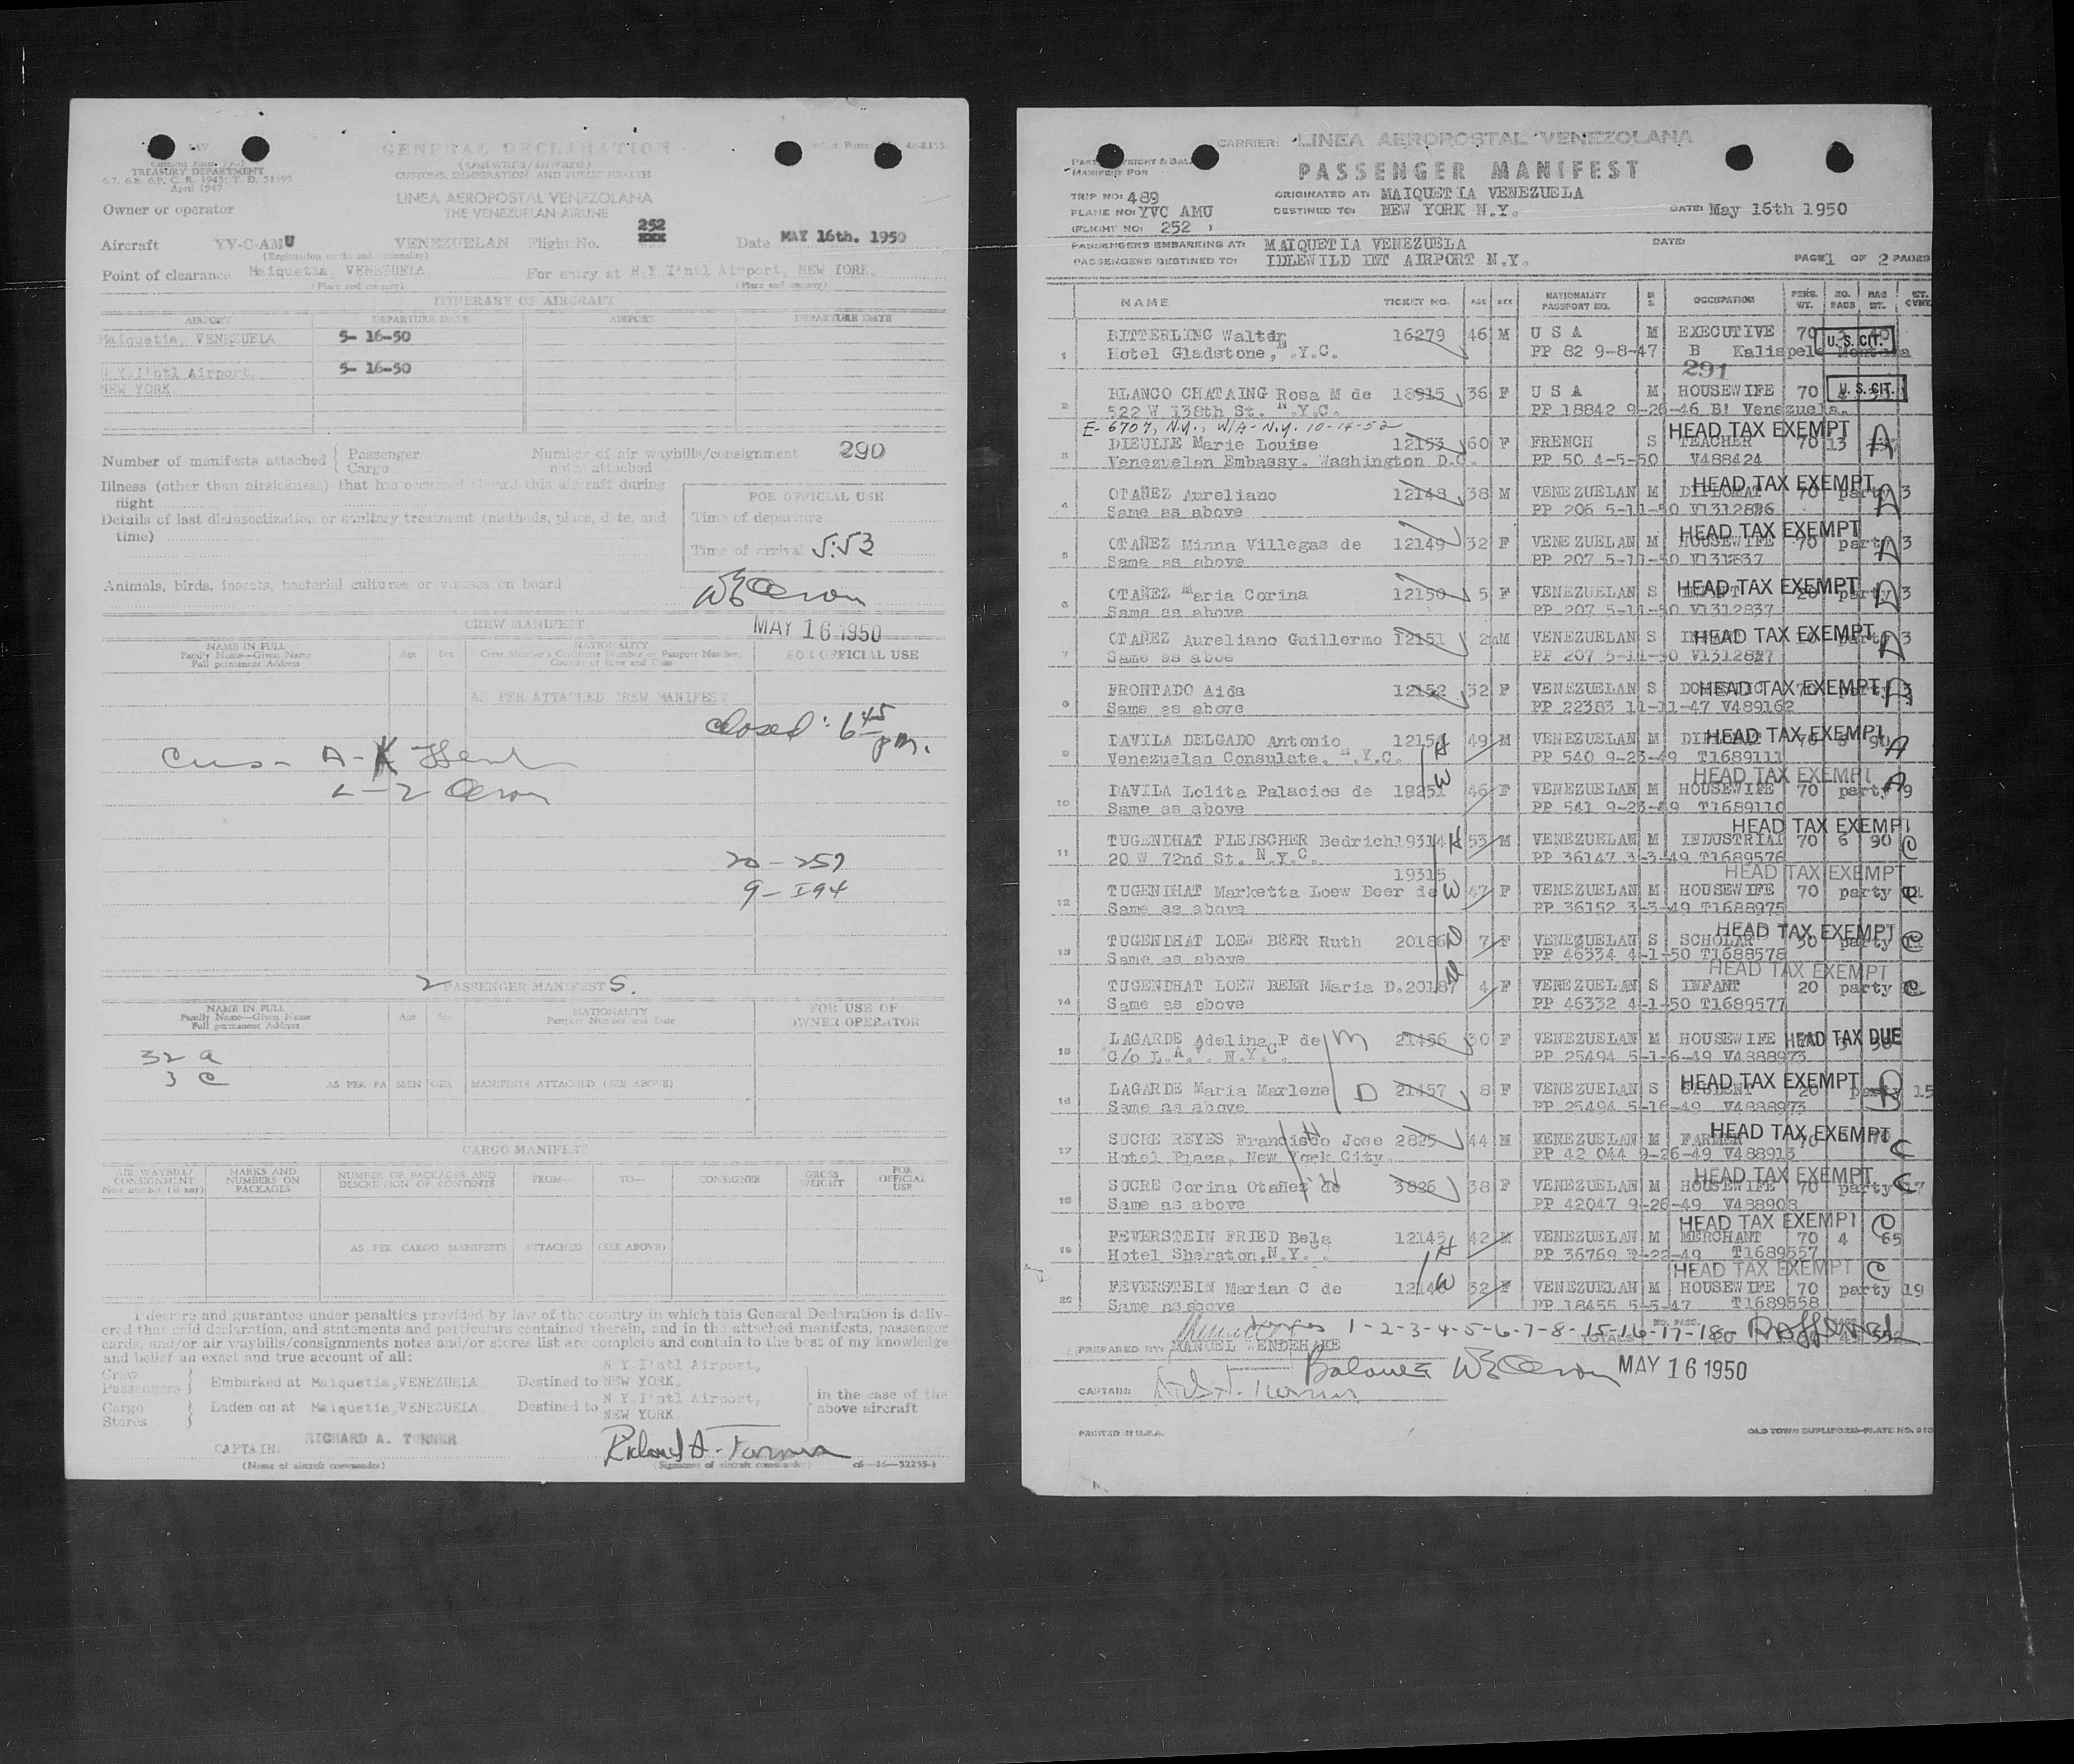 GENERAL DECLARATION
(Outward/Inward)
TREASURY DEPARTMENT
CUSTOMS, IMMIGRATION AND PUBLIC HEALTH
April 1947
LINEA AEROPOSTAL VENEZOLANA
THE VENEZUELAN AIRLINE
Owner or operator
252
Aircraft YV-C-AMU VENEZUELAN Flight No. XXX Date MAY 16th. 1950
(Registration marks and nationality)
Point of clearance Maiquetia, VENEZUELA For entry at N.Y I'ntl Airport, NEW YORK.
(Place and country) (Place and country)
ITINERARY OF AIRCRAFT
AIRPORT DEPARTURE DATE AIRPORT DEPARTURE DATE
Maiquetia, VENEZUELA 5- 16-50
N.Y.I'ntl Airport, 5- 16-50
NEW YORK
Number of manifests attached { Passenger Number of air waybills/consignment 290
Cargo notes attached
Illness (other than airsickness) that has occurred aboard this aircraft during
flight
FOR OFFICIAL USE
Details of last disinsectization or sanitary treatment (methods, place, date, and
time)
Time of departure
Time of arrival 5:53
Animals, birds, insects, bacterial cultures or viruses on board
CREW MANIFEST
MAY 16 1950
NAME IN FULL
Family Name—Given Name
Full permanent Address
Age Sex
NATIONALITY
Crew Member's Certificate Number or Passport Number,
Country of Issue and Date
FOR OFFICIAL USE
AS PER ATTACHED CREW MANIFEST
closed: 6 45
pm.
Cus - A-K
20 - 257
9 - I94
2 PASSENGER MANIFESTS.
NAME IN FULL
Family Name—Given Name
Full permanent Address
Age Sex
NATIONALITY
Passport Number and Date
FOR USE OF
OWNER OPERATOR
32 a
3 c
AS PER PA SSEN GER MANIFESTS ATTACHED (SEE ABOVE)
CARGO MANIFEST
AIR WAYBILL/
CONSIGNMENT
Note number (if any)
MARKS AND
NUMBERS ON
PACKAGES
NUMBER OF PACKAGES AND
DESCRIPTION OF CONTENTS
FROM— TO— CONSIGNEE
GROSS
WEIGHT
FOR
OFFICIAL
USE
AS PER CARGO MANIFESTS ATTACHED (SEE ABOVE)
I declare and guarantee under penalties provided by law of the country in which this General Declaration is deliv-
ered that said declaration, and statements and particulars contained therein, and in the attached manifests, passenger
cards, and/or air waybills/consignments notes and/or stores list are complete and contain to the best of my knowledge
and belief an exact and true account of all:
Crew
Passengers } Embarked at Maiquetia, VENEZUELA Destined to N.Y.I'ntl Airport, NEW YORK.
Cargo
Stores } Laden on at Maiquetia, VENEZUELA Destined to N.Y.I'ntl Airport, NEW YORK
in the case of the
above aircraft
CAPTAIN. RICHARD A. TURNER Richard A. Turner
(Name of aircraft commander) (Signature of aircraft commander)
CARRIER: LINEA AEROPOSTAL VENEZOLANA
PASSENGER MANIFEST
TRIP NO: 489 ORIGINATED AT: MAIQUETIA VENEZUELA
PLANE NO: YVC AMU DESTINED TO: NEW YORK N.Y. DATE: May 16th 1950
(FLIGHT NO: 252 )
PASSENGERS EMBARKING AT: MAIQUETIA VENEZUELA DATE:
PASSENGERS DESTINED TO: IDLEWILD INT AIRPORT N.Y. PAGE 1 OF 2 PAGES
NAME TICKET NO. AGE SEX NATIONALITY PASSPORT NO. OCCUPATION PERS. WT. NO. BAGS BAG WT.
1 BITTERLING Walter E 16279 46 M U S A M EXECUTIVE 70 U.S.CIT.
Hotel Gladstone, N.Y.C. PP 82 9-8-47 B Kalispele Montana
291
2 BLANCO CHATAING Rosa M de 18915 36 F U S A M HOUSEWIFE 70 U.S.CIT.
522 W 138th St. N.Y.C. PP 18842 9-26-46 B! Venezuela.
E-6707, N.Y., W/A-N.Y. 10-14-52 HEAD TAX EXEMPT
3 DIEULIE Marie Louise 12153 60 F FRENCH S TEACHER 70 13 A
Venezuelan Embassy. Washington D.C. PP 50 4-5-50 V488424
HEAD TAX EXEMPT
4 OTAÑEZ Aureliano 12148 38 M VENEZUELAN M DIPLOMAT 70 party 3 A
Same as above PP 206 5-11-50 V1312836
HEAD TAX EXEMPT
5 OTAÑEZ Minna Villegas de 12149 32 F VENEZUELAN M HOUSEWIFE 70 party 3 A
Same as above PP 207 5-11-50 V1312837
HEAD TAX EXEMPT
6 OTAÑEZ Maria Corina 12150 5 F VENEZUELAN S party 3 A
Same as above PP 207 5-11-50 V1312837
HEAD TAX EXEMPT
7 OTAÑEZ Aureliano Guillermo 12151 2 M VENEZUELAN S INFANT party 3 A
Same as aboe PP 207 5-11-50 V1312837
HEAD TAX EXEMPT
8 FRONTADO Aida 12152 32 F VENEZUELAN S DOMESTIC 70 party 3 A
Same as above PP 22383 11-11-47 V489162
HEAD TAX EXEMPT
9 DAVILA DELGADO Antonio 12154 H 49 M VENEZUELAN M DIPLOMAT 70 90 A
Venezuelan Consulate. N.Y.C. PP 540 9-23-49 T1689111
HEAD TAX EXEMPT
10 DAVILA Lolita Palacios de 19251 W 46 F VENEZUELAN M HOUSEWIFE 70 party 9 A
Same as above PP 541 9-23-49 T1689110
HEAD TAX EXEMPT
11 TUGENDHAT FLEISCHER Bedrich 19314 H 53 M VENEZUELAN M INDUSTRIAL 70 6 90 C
20 W 72nd St. N.Y.C. PP 36147 3-3-49 T1689576
19315 HEAD TAX EXEMPT
12 TUGENDHAT Marketta Loew Beer de W 47 F VENEZUELAN M HOUSEWIFE 70 party 11 C
Same as above PP 36152 3-3-49 T1688975
HEAD TAX EXEMPT
13 TUGENDHAT LOEW BEER Ruth 20186 D 7 F VENEZUELAN S SCHOLAR 30 party 11 C
Same as above PP 46334 4-1-50 T1688578
HEAD TAX EXEMPT
14 TUGENDHAT LOEW BEER Maria D. 20187 D 4 F VENEZUELAN S INFANT 20 party C
Same as above PP 46332 4-1-50 T1689577
15 LAGARDE Adelina P de M 21456 30 F VENEZUELAN M HOUSEWIFE HEAD TAX DUE
C/o L.A.V. N.Y.C. PP 25494 5-1-6-49 V4888973
16 LAGARDE Maria Marlene D 21457 8 F VENEZUELAN S STUDENT HEAD TAX EXEMPT 20 party 15 B
Same as above PP 25494 5-16-49 V4888973
HEAD TAX EXEMPT
17 SUCRE REYES Francisco Jose H 2825 44 M VENEZUELAN M FARMER 70 C
Hotel Plaza, New York City. PP 42 044 9-26-49 V488913
HEAD TAX EXEMPT
18 SUCRE Corina Otañez de W 3826 38 F VENEZUELAN M HOUSEWIFE 70 party 17 C
Same as above PP 42047 9-26-49 V488908
HEAD TAX EXEMPT C
19 FEVERSTEIN FRIED Bela 12145 H 42 M VENEZUELAN M MERCHANT 70 4 65
Hotel Sheraton, N.Y.C. PP 36769 3-22-49 T1689557
HEAD TAX EXEMPT C
20 FEVERSTEIN Marian C de 12146 W 32 F VENEZUELAN M HOUSEWIFE 70 party 19
Same as above PP 18455 5-5-47 T1689558
1-2-3-4-5-6-7-8-15-16-17-18
PREPARED BY: MANUEL WENDEHAKE TOTALS
Balance MAY 16 1950
CAPTAIN: Rich A. Turner
PRINTED IN U.S.A. OLD TOWN DUPLIFORM—PLATE NO.